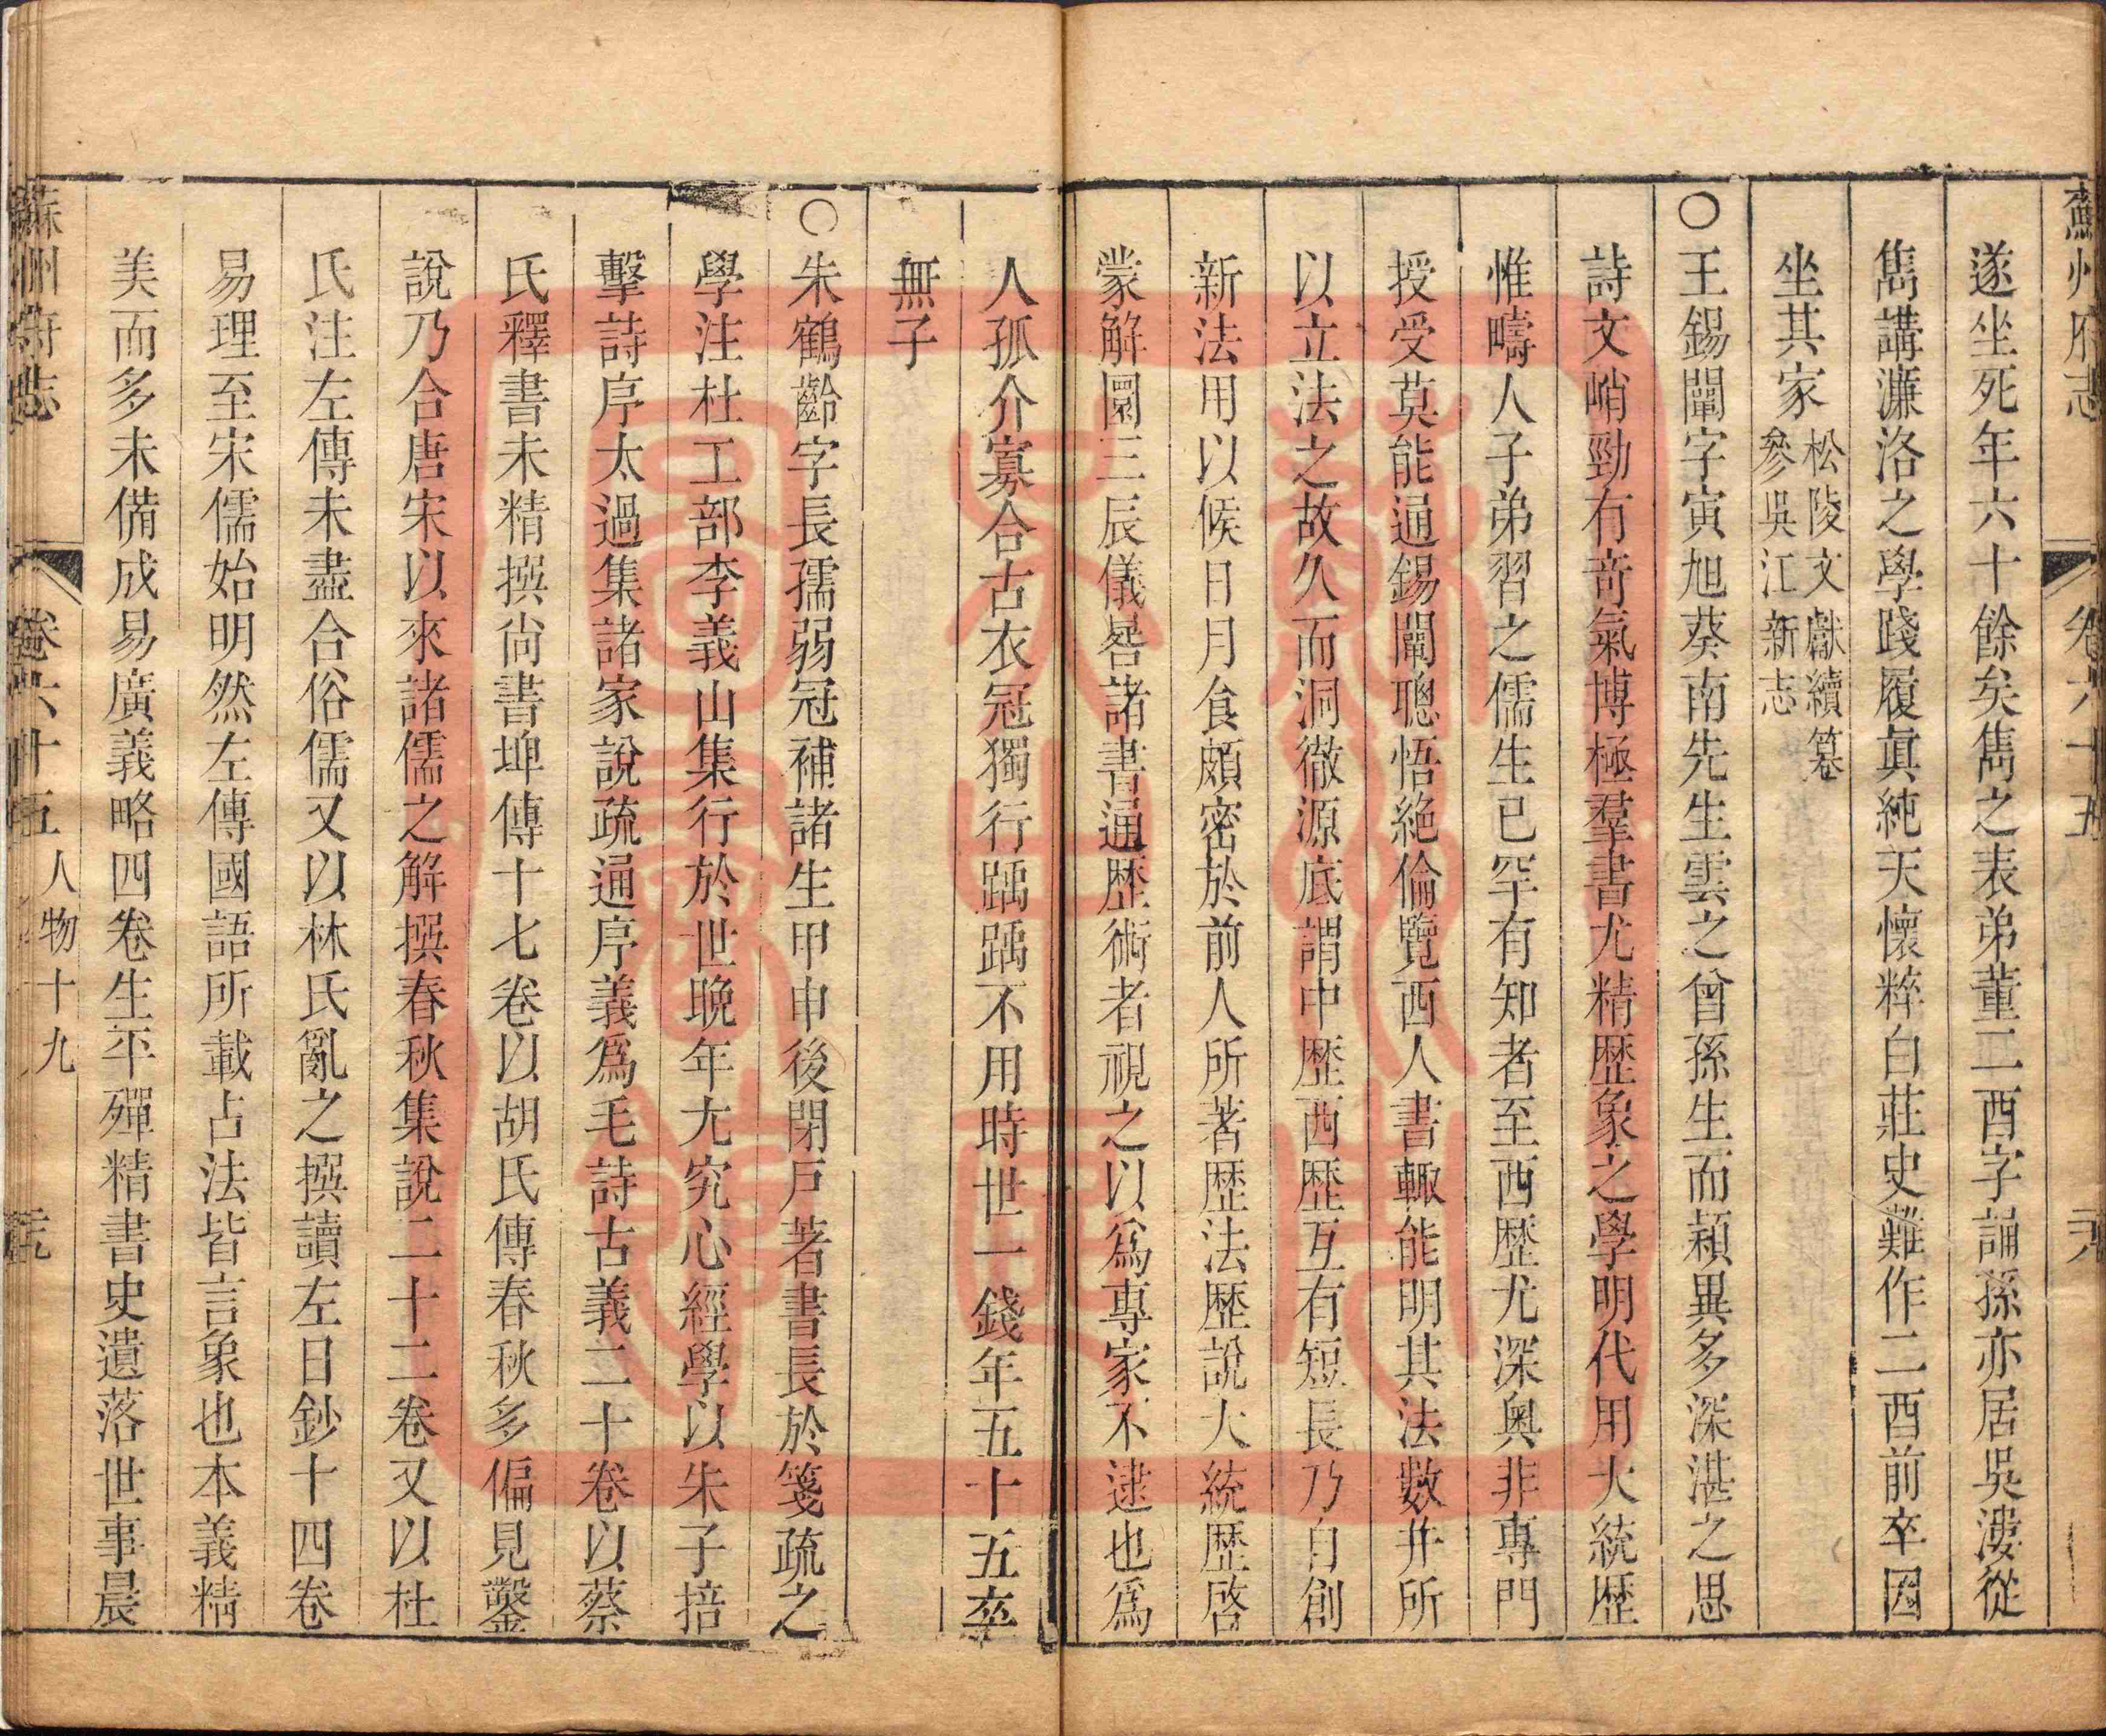 蘇州府志 卷六十五
遂坐死年六十餘矣雋之表弟董二酉字誦孫亦居吳漊從
雋講濂洛之學踐履眞純天懷粹白莊史難作二酉前卒因
坐其家松陵文獻續纂
參吳江新志
○王錫闡字寅旭葵南先生雲之曾孫生而穎異多深湛之思
詩文峭勁有奇氣博極羣書尤精歷象之學明代用大統歷
惟疇人子弟習之儒生已罕有知者至西歷尤深奧非專門
授受莫能通錫闡聰悟絶倫覽西人書輒能明其法數并所
以立法之故久而洞徹源底謂中歷西歷互有短長乃自創
新法用以候日月食頗密於前人所著歷法歷說大統歷啓
蒙解圜三辰儀晷諸書通歷術者視之以爲專家不逮也爲
人孤介寡合古衣冠獨行踽踽不用時世一錢年五十五卒
無子
○朱鶴齡字長孺弱冠補諸生甲申後閉戸著書長於箋疏之
學注杜工部李義山集行於世晚年尤究心經學以朱子掊
擊詩序太過集諸家說疏通序義爲毛詩古義二十卷以蔡
氏釋書未精撰尚書埤傳十七卷以胡氏傳春秋多偏見鑿
說乃合唐宋以來諸儒之解撰春秋集說二十二卷又以杜
氏注左傳未盡合俗儒又以林氏亂之撰讀左日鈔十四卷
易理至宋儒始明然左傳國語所載占法皆言象也本義精
美而多未備成易廣義略四卷生平殫精書史遺落世事晨
蘇州府志 卷六十五 人物十九